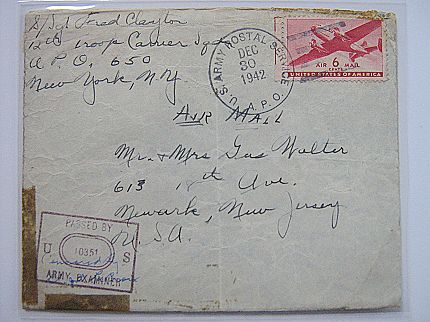 S/Sgt Frad Clayton
12th Troop Carrier Sqd
A.P.O. 650
New York, N.Y.
U.S. ARMY POSTAL SERVICE
A.P.O.
DEC
30
1942
AIR 6 MAIL
CENTS
UNITED STATES OF AMERICA
AIR MAIL
Mr. & Mrs Gus Walter
613 Ave.
Newark, New Jersey
U.S.A.
PASSED BY
U 10351 S
ARMY EXAMINER